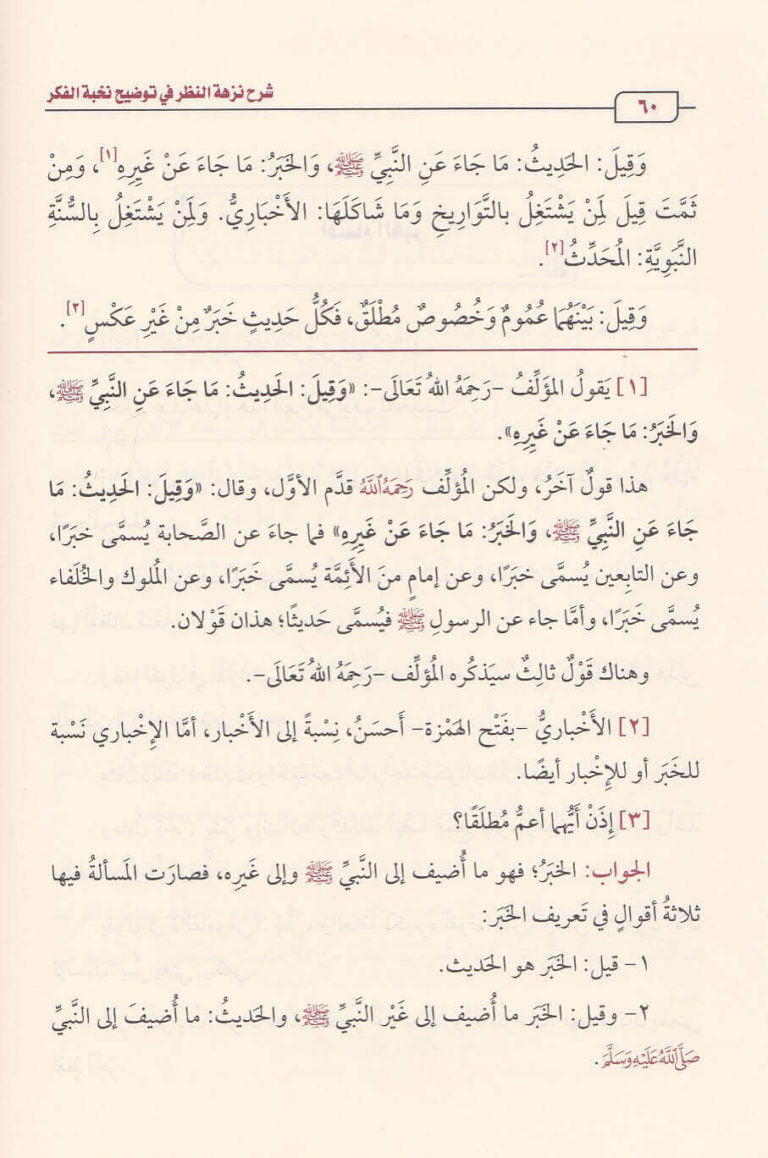 شرح نزهة النظر في توضيح نخبة الفكر
٦٠
وَقِيلَ: الحَدِيثُ: مَا جَاءَ عَنِ النَّبِيِّ ﷺ، وَالخَبَرُ: مَا جَاءَ عَنْ غَيْرِهِ[١]، وَمِنْ
ثَمَّتَ قِيلَ لِمَنْ يَشْتَغِلُ بالتَّوَارِيخِ وَمَا شَاكَلَهَا: الأَخْبَارِيُّ. وَلِمَنْ يَشْتَغِلُ بِالسُّنَّةِ
النَّبَوِيَّةِ: المُحَدِّثُ[٢].
وَقِيلَ: بَيْنَهُمَا عُمُومٌ وَخُصُوصٌ مُطْلَقٌ، فَكُلُّ حَدِيثٍ خَبَرٌ مِنْ غَيْرِ عَكْسٍ[٣].
[١] يَقولُ المؤَلِّفُ -رَحِمَهُ اللهُ تَعَالَى-: «وَقِيلَ: الحَدِيثُ: مَا جَاءَ عَنِ النَّبِيِّ ﷺ،
وَالخَبَرُ: مَا جَاءَ عَنْ غَيْرِهِ».
هذا قولٌ آخَرُ، ولكن المُؤلِّف رَحِمَهُ ٱللَّهُ قدَّم الأوَّل، وقال: «وَقِيلَ: الحَدِيثُ: مَا
جَاءَ عَنِ النَّبِيِّ ﷺ، وَالخَبَرُ: مَا جَاءَ عَنْ غَيْرِهِ» فما جاءَ عن الصَّحابة يُسمَّى خبَرًا،
وعن التابِعين يُسمَّى خبَرًا، وعن إمامٍ منَ الأَئِمَّة يُسمَّى خَبَرًا، وعن المُلوك والخُلَفاء
يُسمَّى خَبَرًا، وأمَّا جاء عن الرسولِ ﷺ فيُسمَّى حَديثًا؛ هذان قَوْلان.
وهناك قَوْلٌ ثالِثٌ سيَذكُره المُؤلِّف -رَحِمَهُ اللهُ تَعَالَى-.
[٢] الأَخْباريُّ -بفَتْح الهَمْزة- أَحسَنُ، نِسْبةً إلى الأَخْبار، أمَّا الإِخْباري نَسْبة
للخبَر أو للإِخْبار أيضًا.
[٣] إِذَنْ أَيُّهما أعمُّ مُطلَقًا؟
الجواب: الخبَرُ؛ فهو ما أُضيف إلى النَّبيِّ ﷺ وإلى غَيرِه، فصارَت المَسألةُ فيها
ثلاثةُ أقوالٍ في تَعريف الخَبَر:
١- قيل: الخَبَر هو الحَديث.
٢- وقيل: الخَبَر ما أُضيف إلى غَيْر النَّبيِّ ﷺ، والحَديثُ: ما أُضيفَ إلى النَّبيِّ
صَلَّى ٱللَّهُ عَلَيْهِ وَسَلَّمَ.